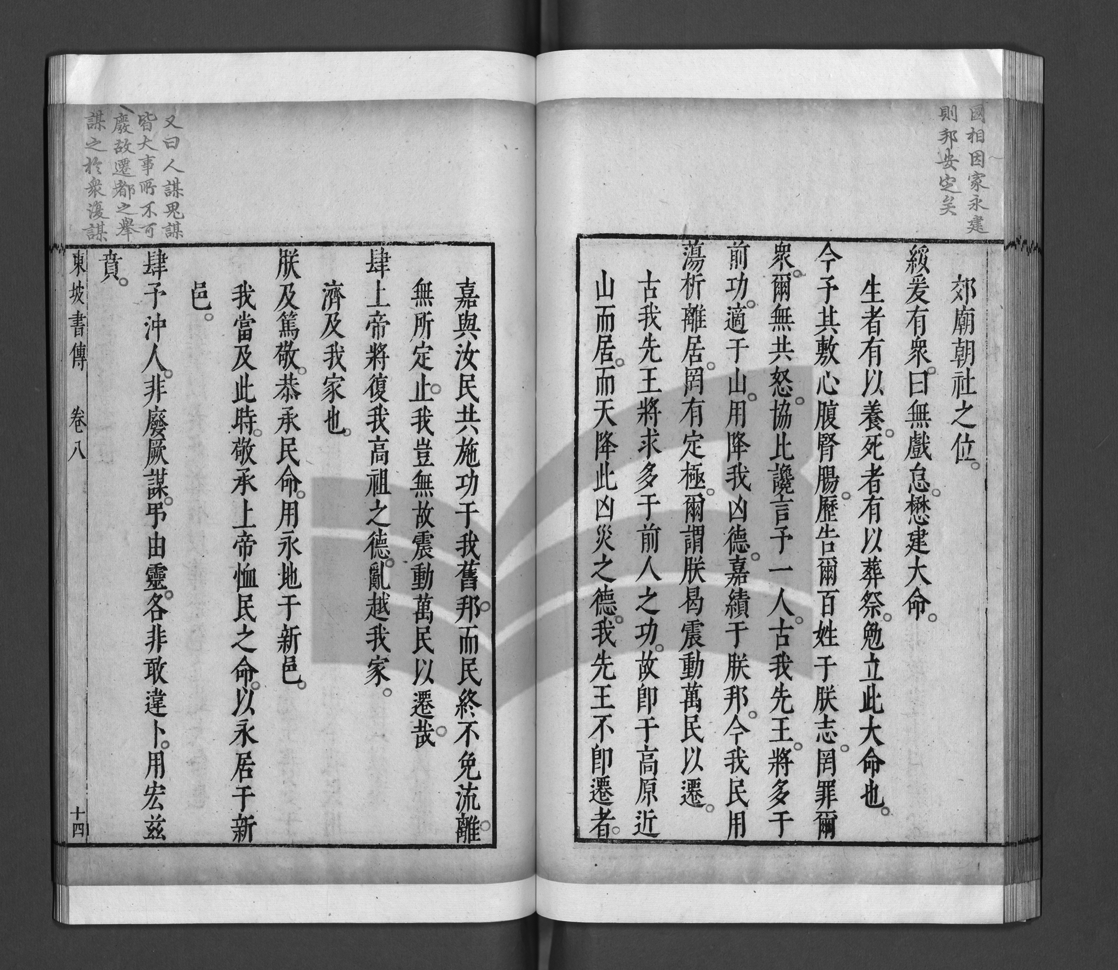 國相因家永建
則邦安定矣
郊廟朝社之位。
綏爰有衆。曰無戲怠。懋建大命。
生者有以養。死者有以葬祭。勉立此大命也。
今予其敷心腹腎腸。歷告爾百姓于朕志。罔罪爾
衆。爾無共怒。協比讒言予一人。古我先王。將多于
前功。適于山。用降我凶德。嘉績于朕邦。今我民用
蕩析離居。罔有定極。爾謂朕曷震動萬民以遷。
古我先王將求多于前人之功。故卽于高原近
山而居。而天降此凶災之德。我先王不卽遷者。
嘉與汝民共施功于我舊邦。而民終不免流離。
無所定止。我豈無故震動萬民以遷哉。
肆上帝將復我高祖之德。亂越我家。
濟及我家也。
朕及篤敬。恭承民命。用永地于新邑。
我當及此時。敬承上帝恤民之命。以永居于新
邑。
肆予沖人。非廢厥謀。弔由靈。各非敢違卜。用宏茲
賁。
東坡書傳 卷八 十四
又曰人謀鬼謀
皆大事所不可
廢故遷都之舉
謀之於衆復謀